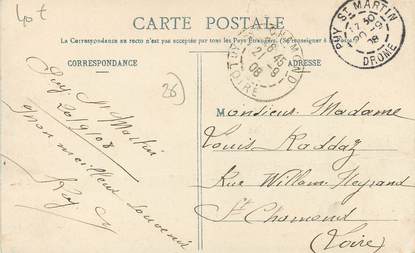 40t
CARTE POSTALE
La Correspondance au recto n'est pas acceptée par tous les Pays Étrangers. (Se renseigner à la Poste)
CORRESPONDANCE
ADRESSE
PUY ST MARTIN
20-9
08
DROME
ST CHAMOND
6 45
21-9
08
LOIRE
26
Puy St Martin
20/9/08
Mon meilleur souvenir
Monsieur Madame
Louis Raddaz
Rue William Neyrand
St Chamond
(Loire)